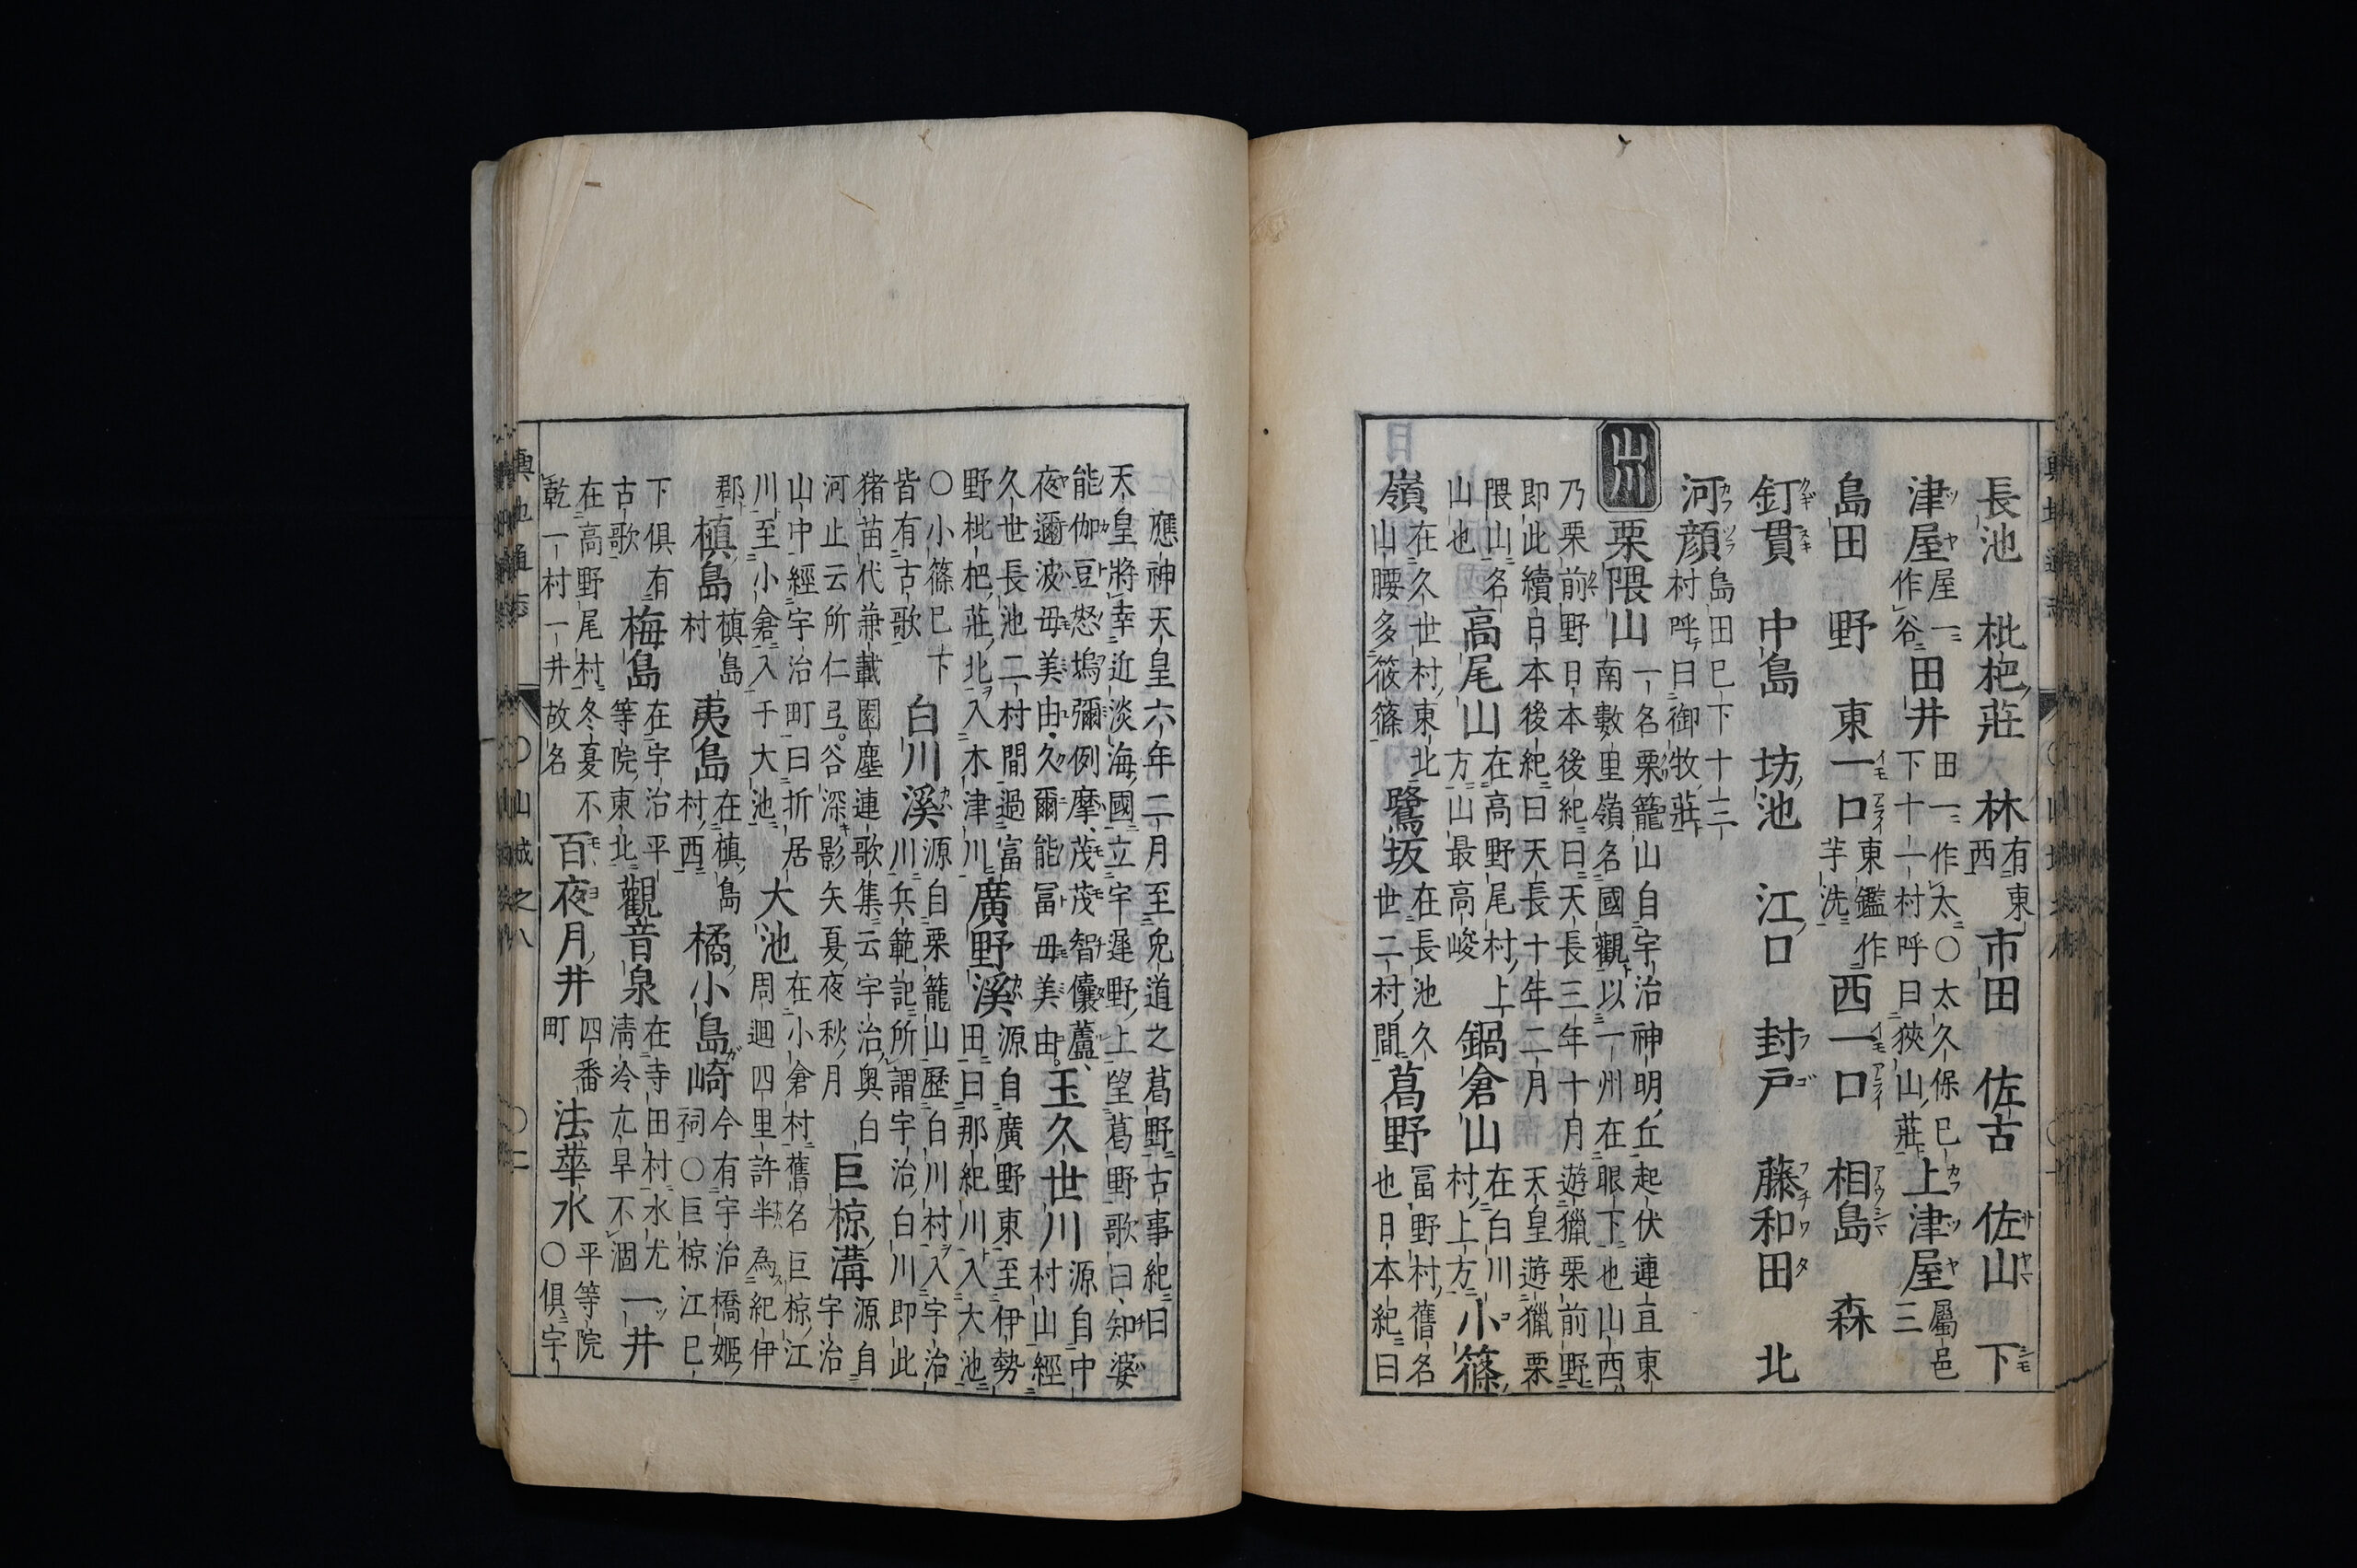 長池 枇杷莊 林 有東西 市田 佐古 佐山 下
津屋 屋一作谷 田井 田一作太○太久保已下十一村呼曰狹山莊 上津屋 屬邑三
島田 野 東一口 東鑑作芋洗 西一口 相島 森
釘貫 中島 坊池 江口 封戸 藤和田 北
河顔 島田已下十三村呼曰御牧莊
山川 栗隈山 一名栗籠山自宇治神明丘起伏連亘東南數里嶺名國觀以一州在眼下也山西
乃栗前野日本後紀曰天長三年十月遊獵栗前野
即此續日本後紀曰天長十年二月天皇遊獵栗
隈山名山也 高尾山 在高野尾村上方山最高峻 鍋倉山 在白川村上方 小篠
嶺 在久世村東北山腰多篠篠 鷺坂 在長池久世二村間 葛野 冨野村舊名也日本紀曰
應神天皇六年二月至兔道之葛野古事紀曰
天皇將幸近淡海國立宇遲野上望葛野歌曰知婆
能伽豆怒塢彌例摩茂茂智儾蘆
夜邇波毋美由久爾能冨毋美由 玉久世川 源自中村山經
久世長池二村間過富
野枇杷莊北入木津川 廣野溪 源自廣野東至伊勢田曰那紀川入大池
○小篠已下皆有古歌 白川溪 源自栗籠山歷白川村入宇治川兵範記所謂宇治白川即此
猪苗代兼載園塵連歌集云宇治奥白
河止云所仁弖谷深影矢夏夜秋月 巨椋溝 源自宇治
山中經宇治町曰折居
川至小倉入于大池 大池 在小倉村舊名巨椋江周迴四里許半為紀伊
郡 槙島 槙島村 夷島 在槙島村西 橘小島崎 今有宇治橋姬祠○巨椋江已
下俱有古歌 梅島 在宇治平等院東北 觀音泉 在寺田村水尤淸冷亢旱不涸 一井
在高野尾村冬夏不
乾一村一井故名 百夜月井 四番町 法華水 平等院○俱宇
輿地通志 ○山城之八 ○二